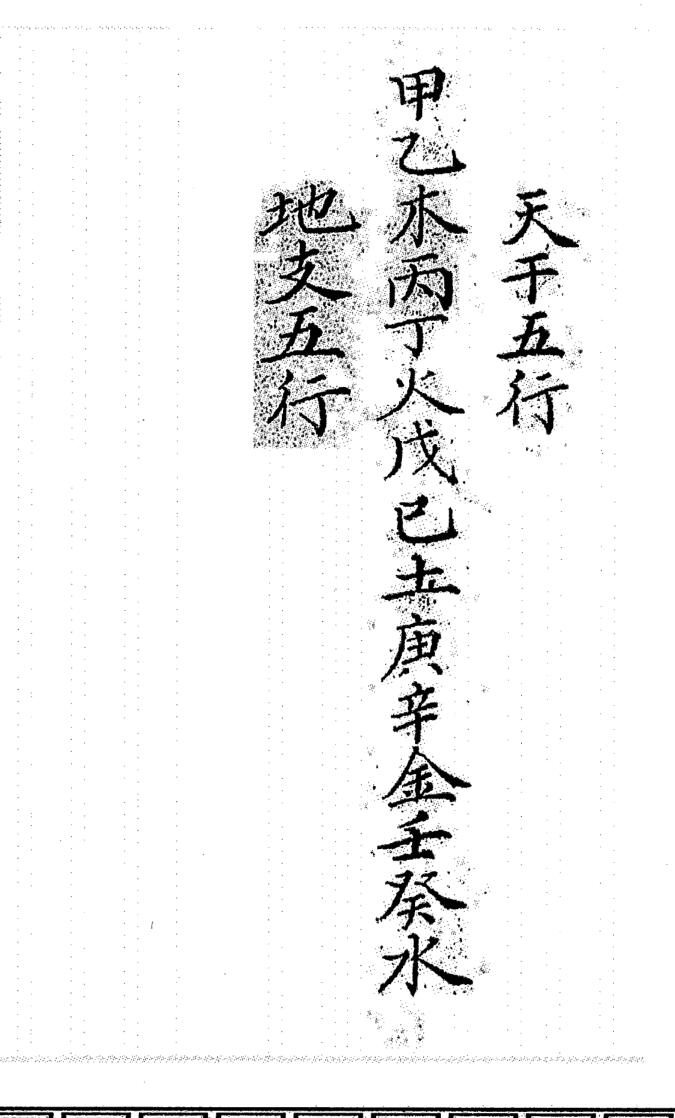 天干五行
甲乙木丙丁火戊巳土庚辛金壬癸水
地支五行